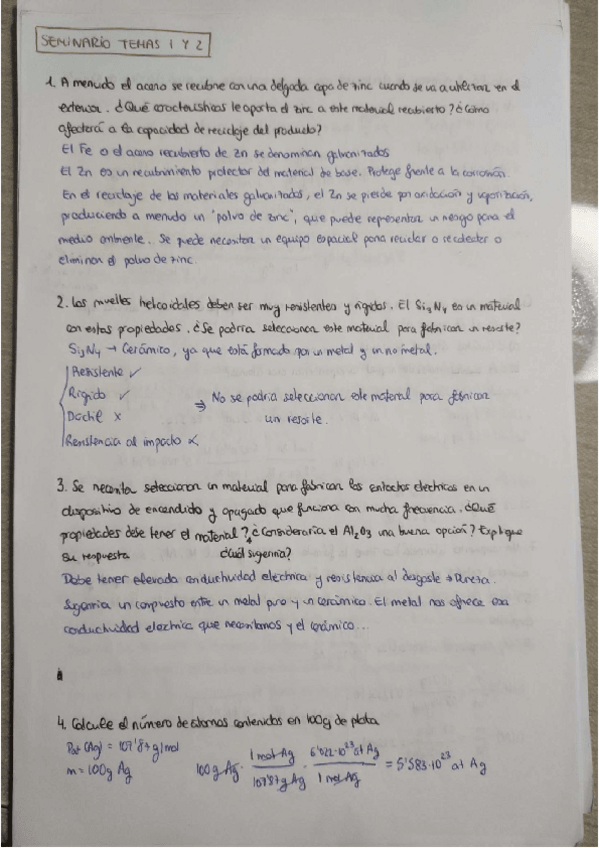 SEMINARIO TEMAS 1 Y 2
1. A menudo el acero se recubre con una delgada capa de zinc cuando se va a utilizar en el
exterior. ¿Qué características le aporta el zinc a este material recubierto? ¿Cómo
afectará a la capacidad de reciclaje del producto?
El Fe o el acero recubierto de Zn se denominan galvanizados
El Zn es un recubrimiento protector del material de base. Protege frente a la corrosión.
En el reciclaje de los materiales galvanizados, el Zn se pierde por oxidación y vaporización,
produciendo a menudo un "polvo de zinc", que puede representar un riesgo para el
medio ambiente. Se puede necesitar un equipo especial para reciclar o recolectar o
eliminar el polvo de zinc.
2. Los muelles helicoidales deben ser muy resistentes y rígidos. El Si3N4 es un material
con estas propiedades. ¿Se podría seleccionar este material para fabricar un resorte?
Si3N4 → Cerámico, ya que está formado por un metal y un no metal.
Resistente ✓
Rígido ✓
Dúctil x
Resistencia al impacto x
⇒ No se podría seleccionar este material para fabricar
un resorte.
3. Se necesita seleccionar un material para fabricar los contactos electricos en un
dispositivo de encendido y apagado que funciona con mucha frecuencia. ¿Qué
propiedades debe tener el material? ¿Consideraría el Al2O3 una buena opción? Explique
su respuesta ¿Cuál sugeriría?
Debe tener elevada conductividad electrica y resistencia al desgaste → Dureza.
Sugeriría un compuesto entre un metal puro y un cerámico. El metal nos ofrece esa
conductividad electrica que necesitamos y el cerámico...
4. Calcule el número de átomos contenidos en 100g de plata
Pat (Ag) = 107'87 g/mol
m = 100g Ag
100g Ag · 1 mol Ag / 107'87g Ag · 6'022·10^23 at Ag / 1 mol Ag = 5'583·10^23 at Ag